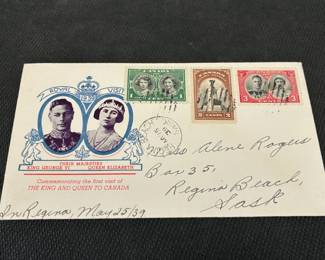 ROYAL VISIT
1939
THEIR MAJESTIES
KING GEORGE VI QUEEN ELIZABETH
Commemorating the first visit of
THE KING AND QUEEN TO CANADA
In Regina, May 25/39
CANADA
CANADA
2 CENTS
3 CENTS 3
Miss Alene Rogers
Box 35,
Regina Beach,
Sask